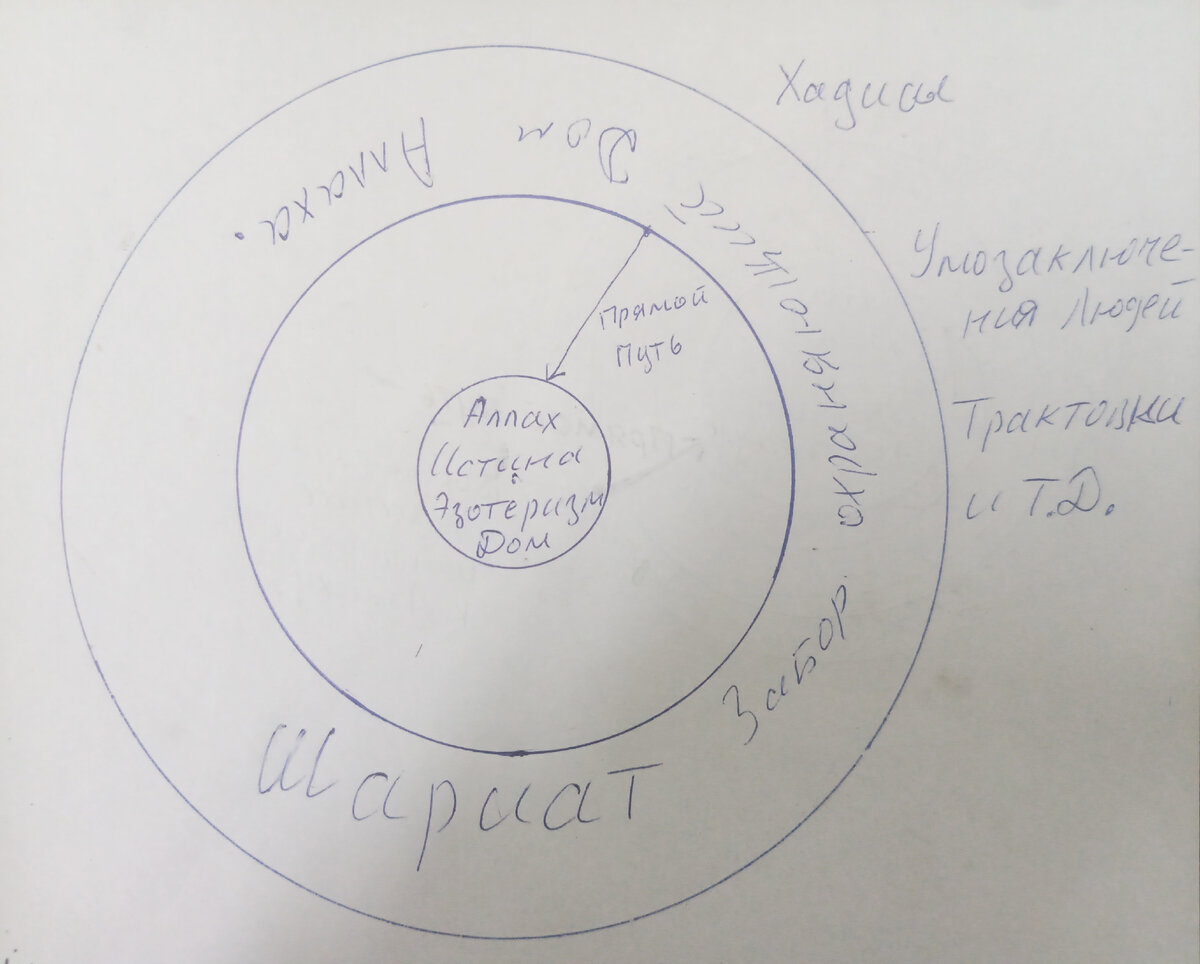 Хадисы
Умозаключе-
ния Людей
Трактовки
и Т.Д.
Прямой
Путь
Аллах
Истина
Эзотеризм
Дом
Шариат
Забор охраняющий Дом Аллаха.